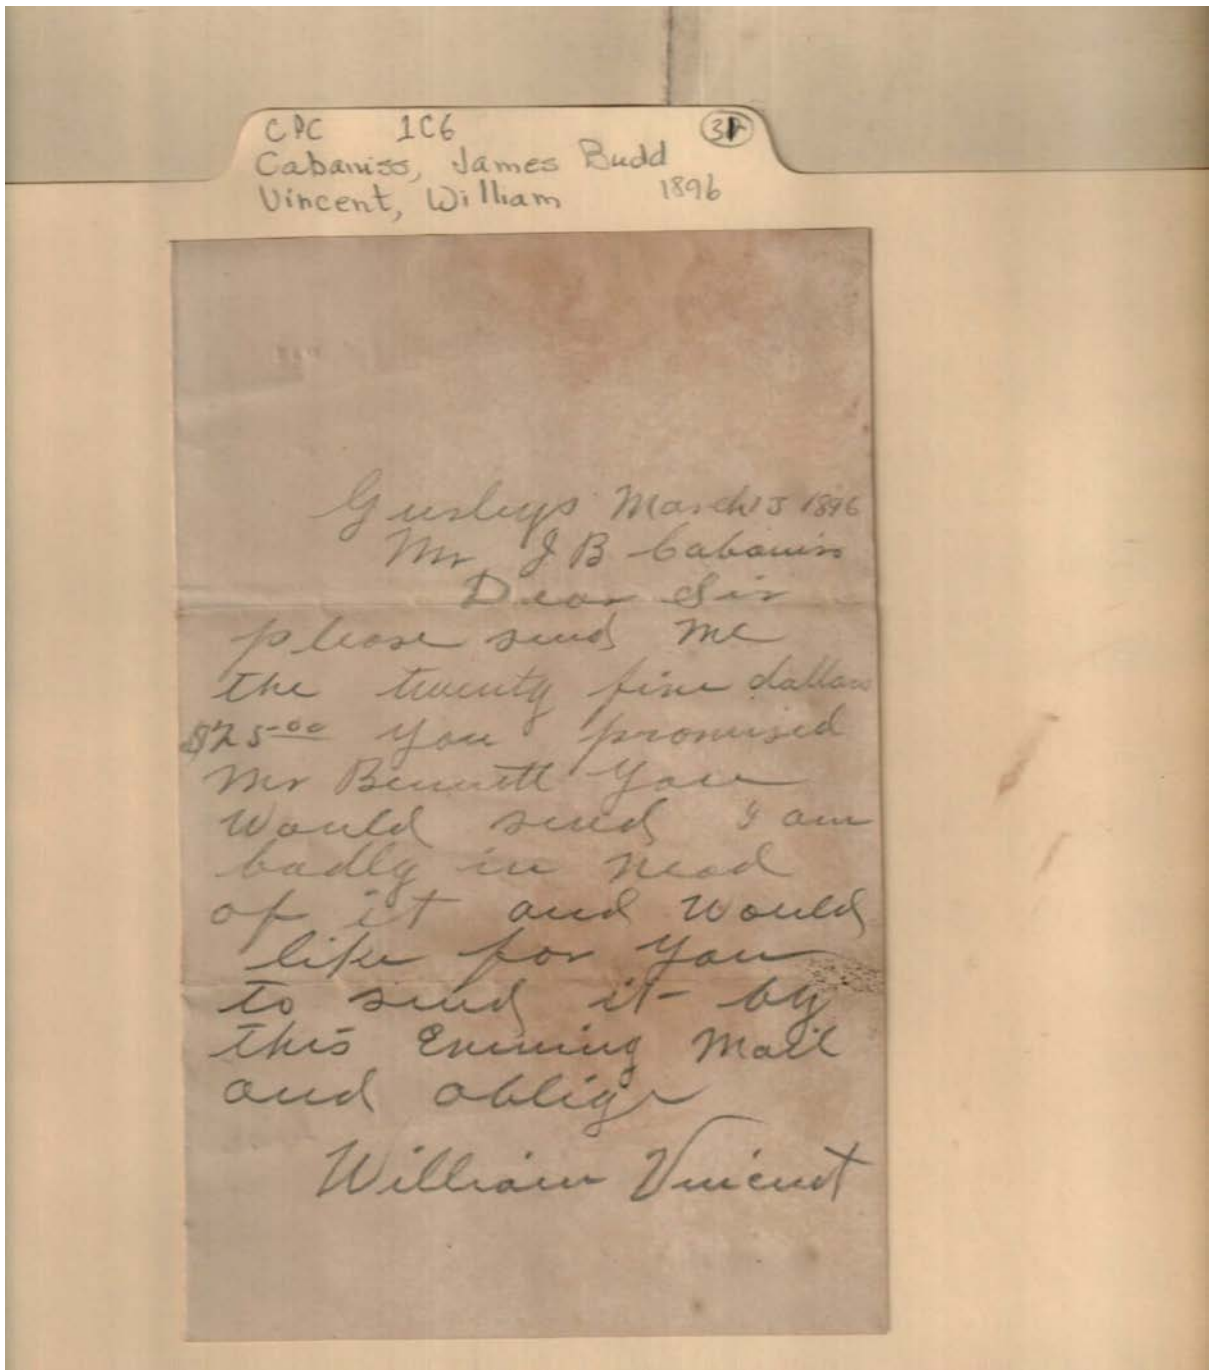 CPC 1C6
Cabaniss, James Budd
Vincent, William 1896
Gurleys March 5 1896
Mr J B Cabaniss
Dear Sir
please send me
the twenty five dollars
$25.00 you promised
Mr Bennett you
would send I am
badly in nead
of it and would
like for you
to send it by
this Evening Mail
and oblige
William Vincent